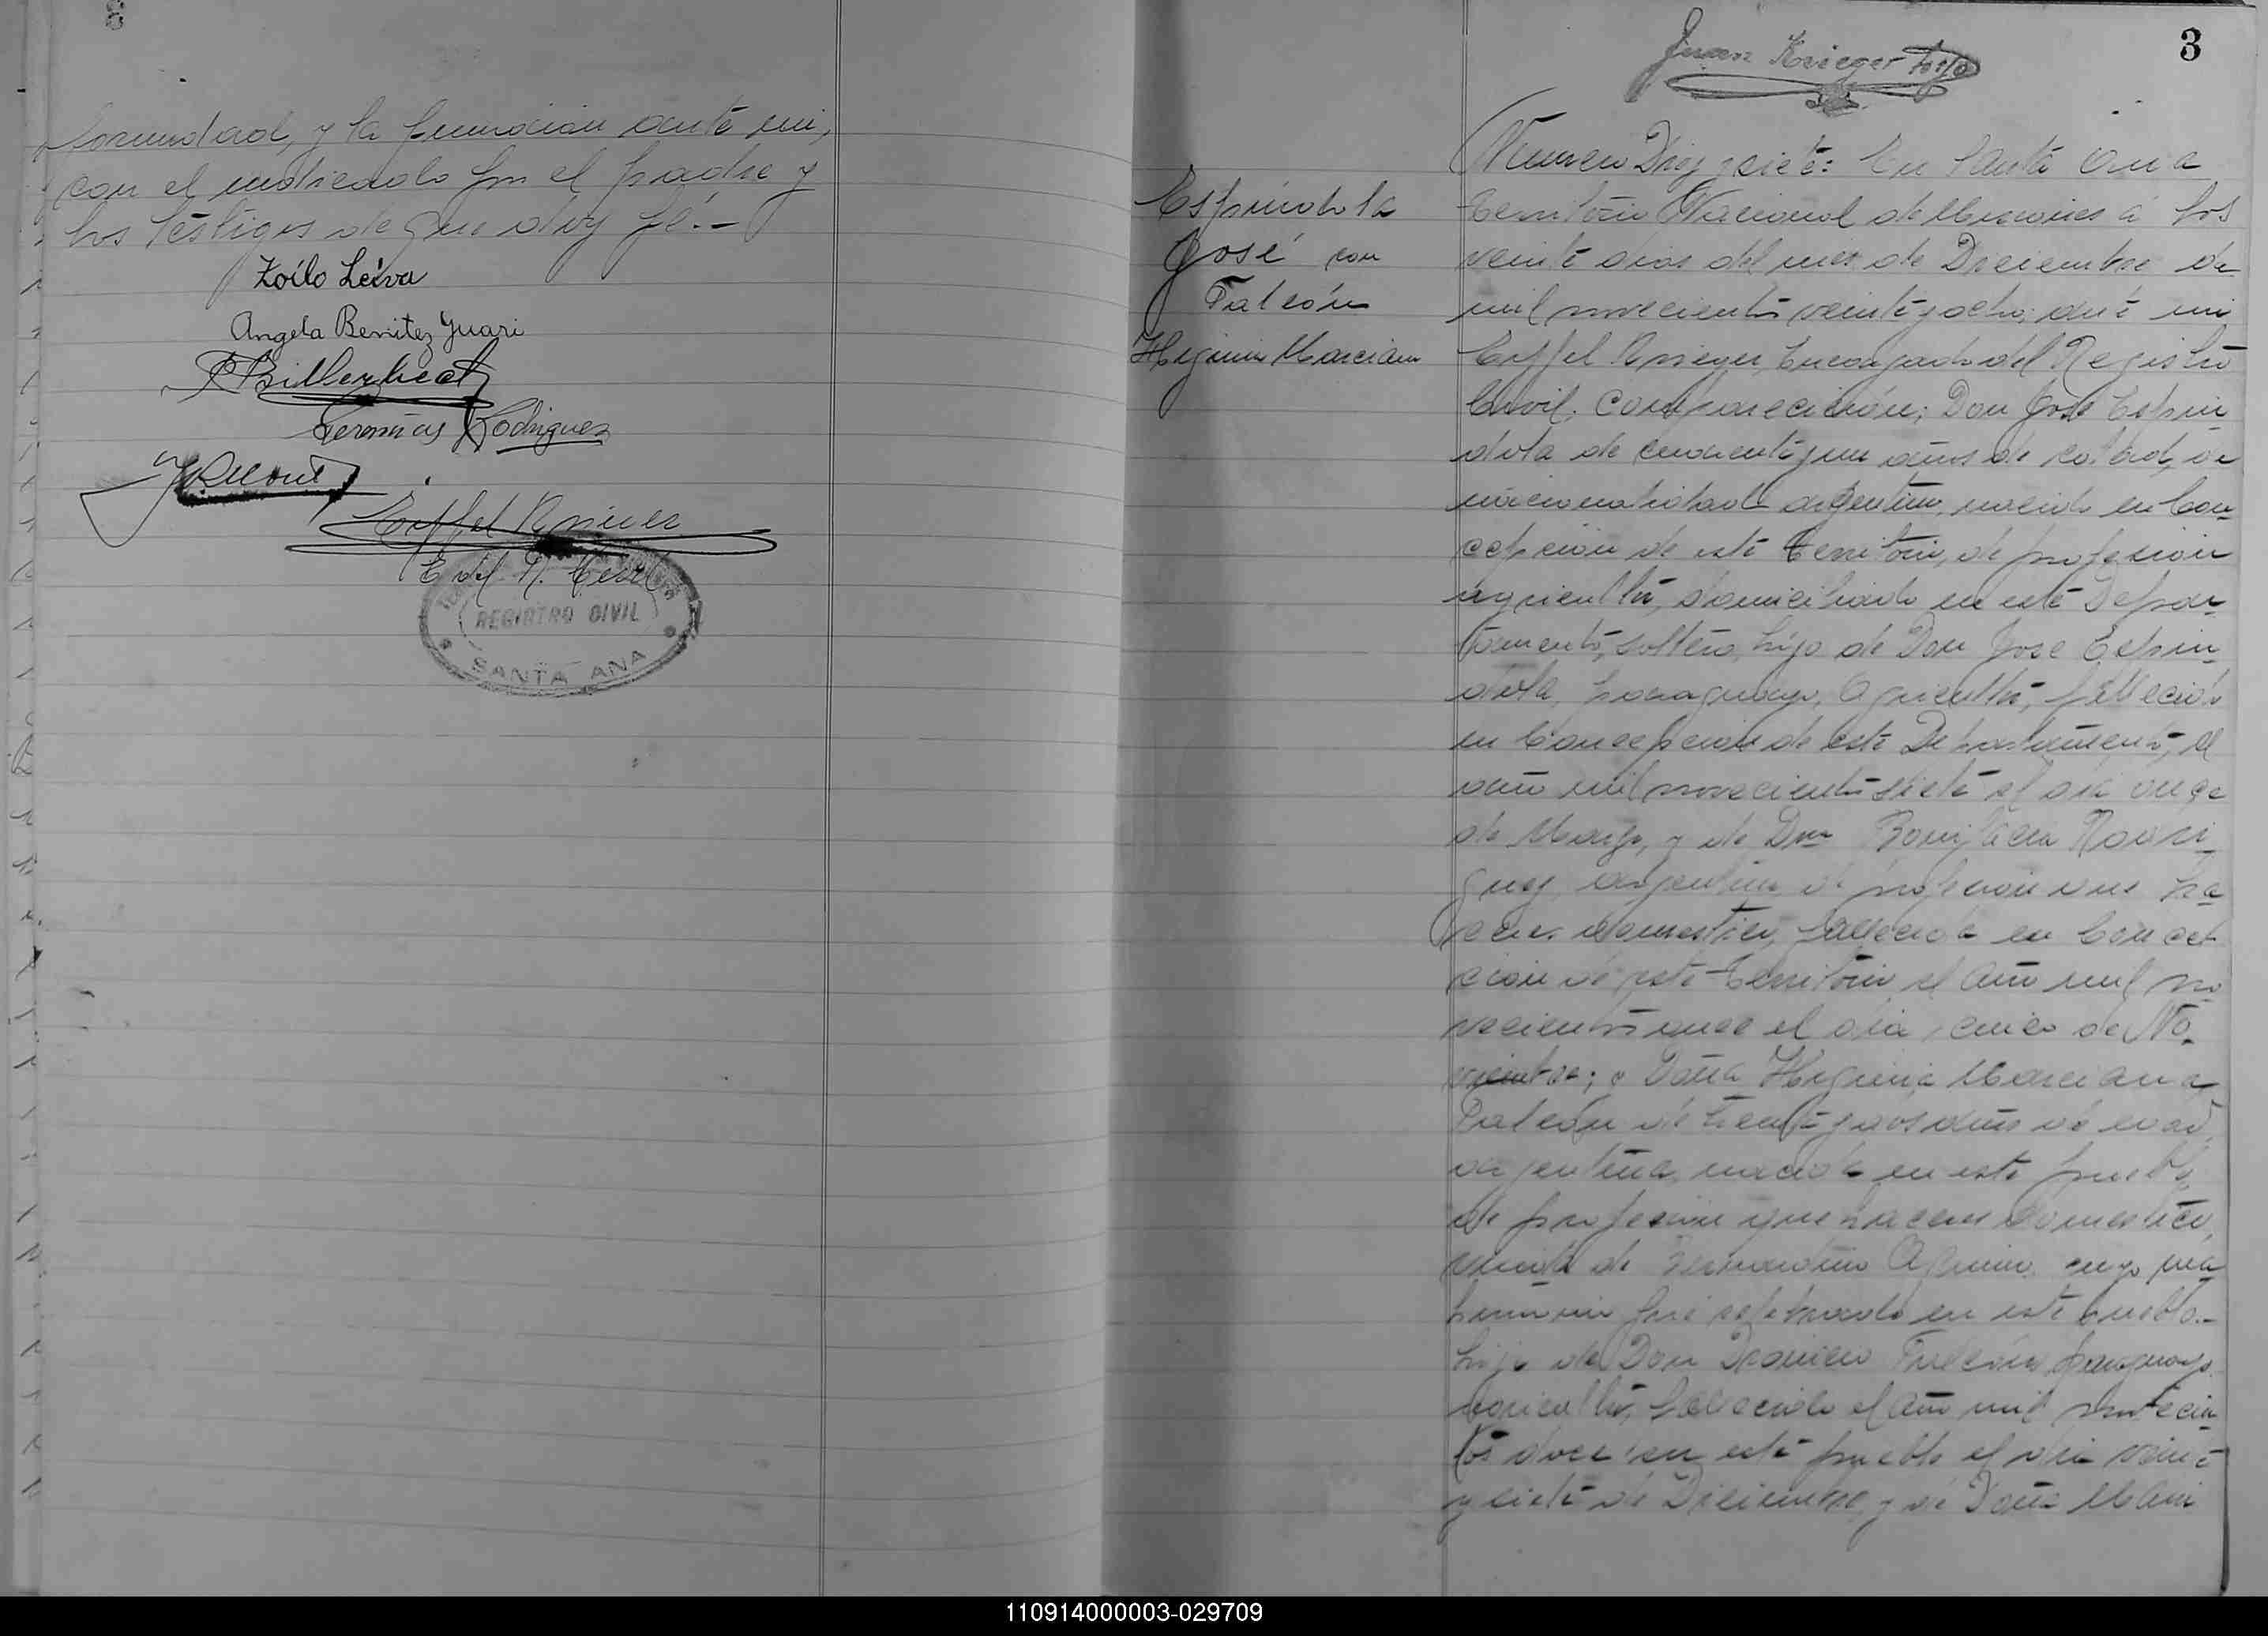 con el indicado por el padre y
los testigos de que doy fé.-
Zoilo Leiva
Angela Benitez Guari
Geremias Rodriguez
Eiffel Krieger
E. del R. Civil
REGISTRO CIVIL
SANTA ANA
3
Juan Krieger
Espíndola
José con
Falcón
Higinia Marciana
Numero Diez y siete: En Santa Ana
Territorio Nacional de Misiones á los
veinte dias del mes de Diciembre de
mil novecientos veinte y ocho; ante mi
Eiffel Krieger, Encargado del Registro
Civil; comparecieron; Don José Espin
dola de cincuenta y un años de edad, de
nacionalidad argentino, nacido en Con
cepcion de este Territorio, de profesion
agricultor, domiciliado en este Depar
tamento, soltero, hijo de Don Jose Espin
dola, paraguayo, Agricultor, fallecido
en Concepcion de este Departamento, el
año mil novecientos siete el dia once
de Marzo, y de Dña Bonifacia Rodri
guez, argentina, de profesion que ha
ceres domestico, fallecida en Concep
cion de este Territorio el año mil no
vecientos once el dia cinco de No
viembre; y Doña Higinia Marciana
Falcón de treinta y dos años de edad
argentina, nacida en este pueblo,
de profesion que haceres domestico,
viuda de Bernardino Aquino, cuyo ma
trimonio fué celebrado en este pueblo.-
hija de Don Dionicio Falcón, paraguayo
agricultor, fallecido el año mil novecien
tos doce en este pueblo el dia veinte
y siete de Diciembre, y de Doña
110914000003-029709